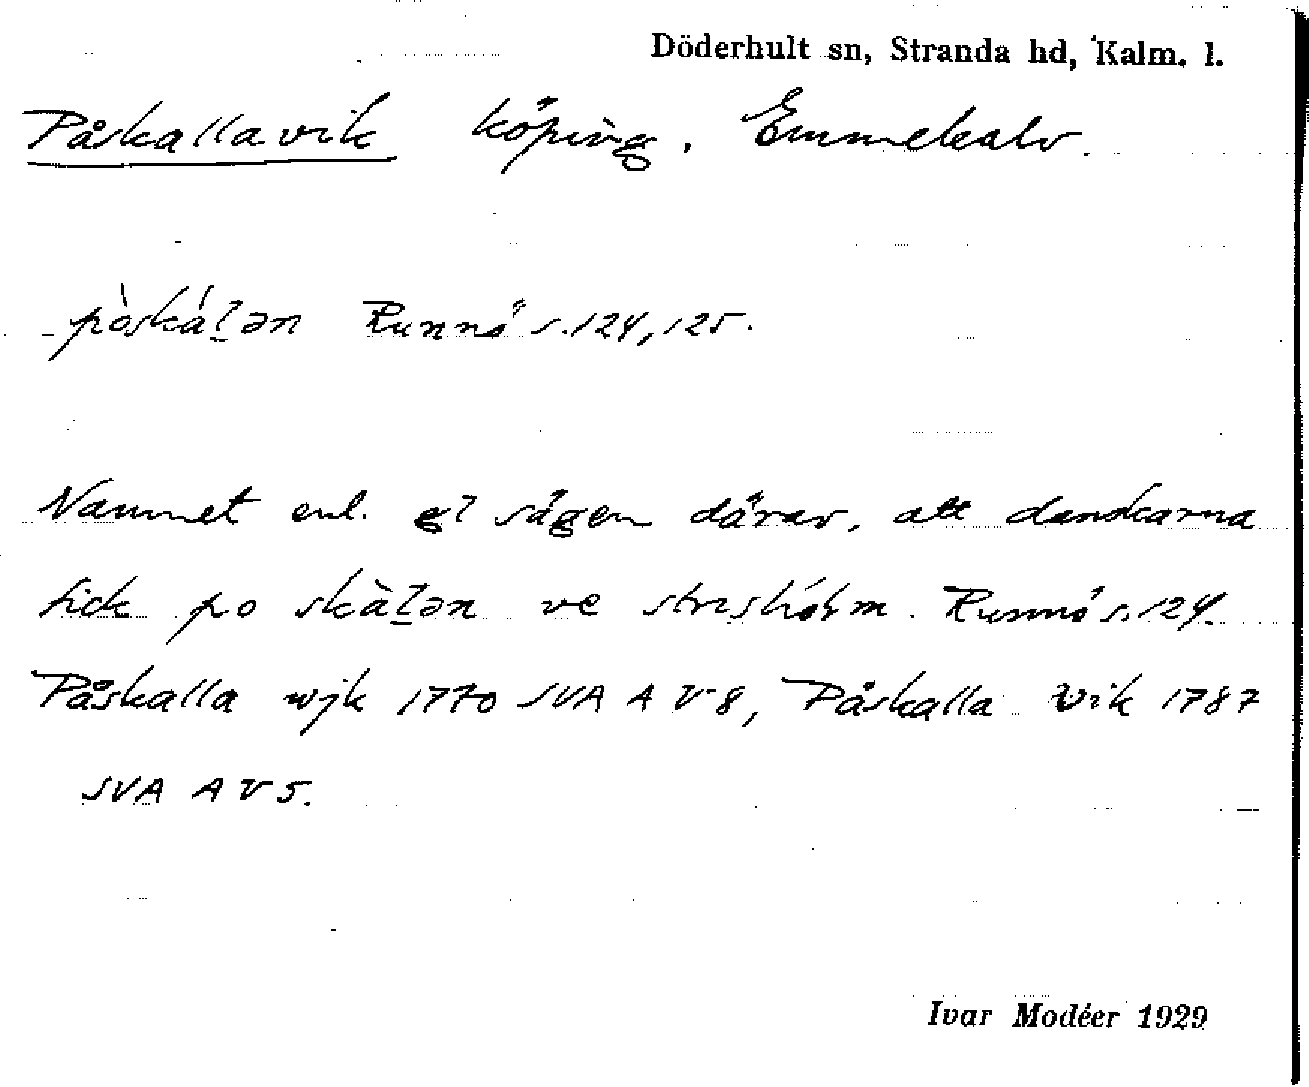 Döderhult sn, Stranda hd, Kalm. l.
Påskallavik köping, Emmekalv.
pòskálən Runnö s. 124, 125.
Namnet enl. gl sägen därav, att danskarna
fick po skàlən ve strishólm. Runnö s. 124.
Påskalla wjk 1770 SVA A V 8, Påskalla Vik 1787
SVA A V 5.
Ivar Modéer 1929